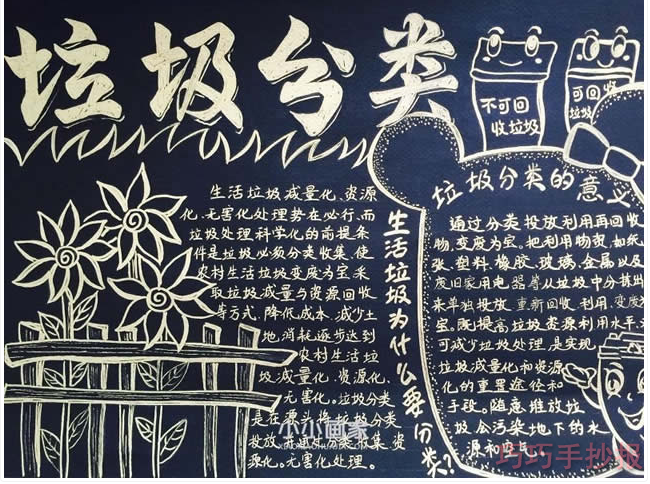 垃圾分类
不可回
收垃圾
可回收
垃圾
生活垃圾减量化、资源
化、无害化处理势在必行，而
垃圾处理科学化的前提条
件是垃圾必须分类收集，使
农村生活垃圾变废为宝，采
取垃圾减量与资源回收
等方式，降低成本，减少土
地消耗逐步达到
农村生活垃
圾减量化、资源化、
无害化。垃圾分类
是在源头将垃圾分类
投放，
集、资
源化。无害化处理。
生活垃圾为什么要分类？
垃圾分类的意义
通过分类投放利用再回收
物，变废为宝。把利用物资，如纸
张、塑料、橡胶、玻璃、金属以及
废旧家用电器等从垃圾中分拣出
来单独投放，重新回收、利用，变废为
宝。既提高垃圾资源利用水平，又
可减少垃圾处理，是实现
垃圾减量化和资源
化的重要途径和
手段。随意堆放垃
圾会污染地下的水
源和空气。
小小画家
巧巧手抄报